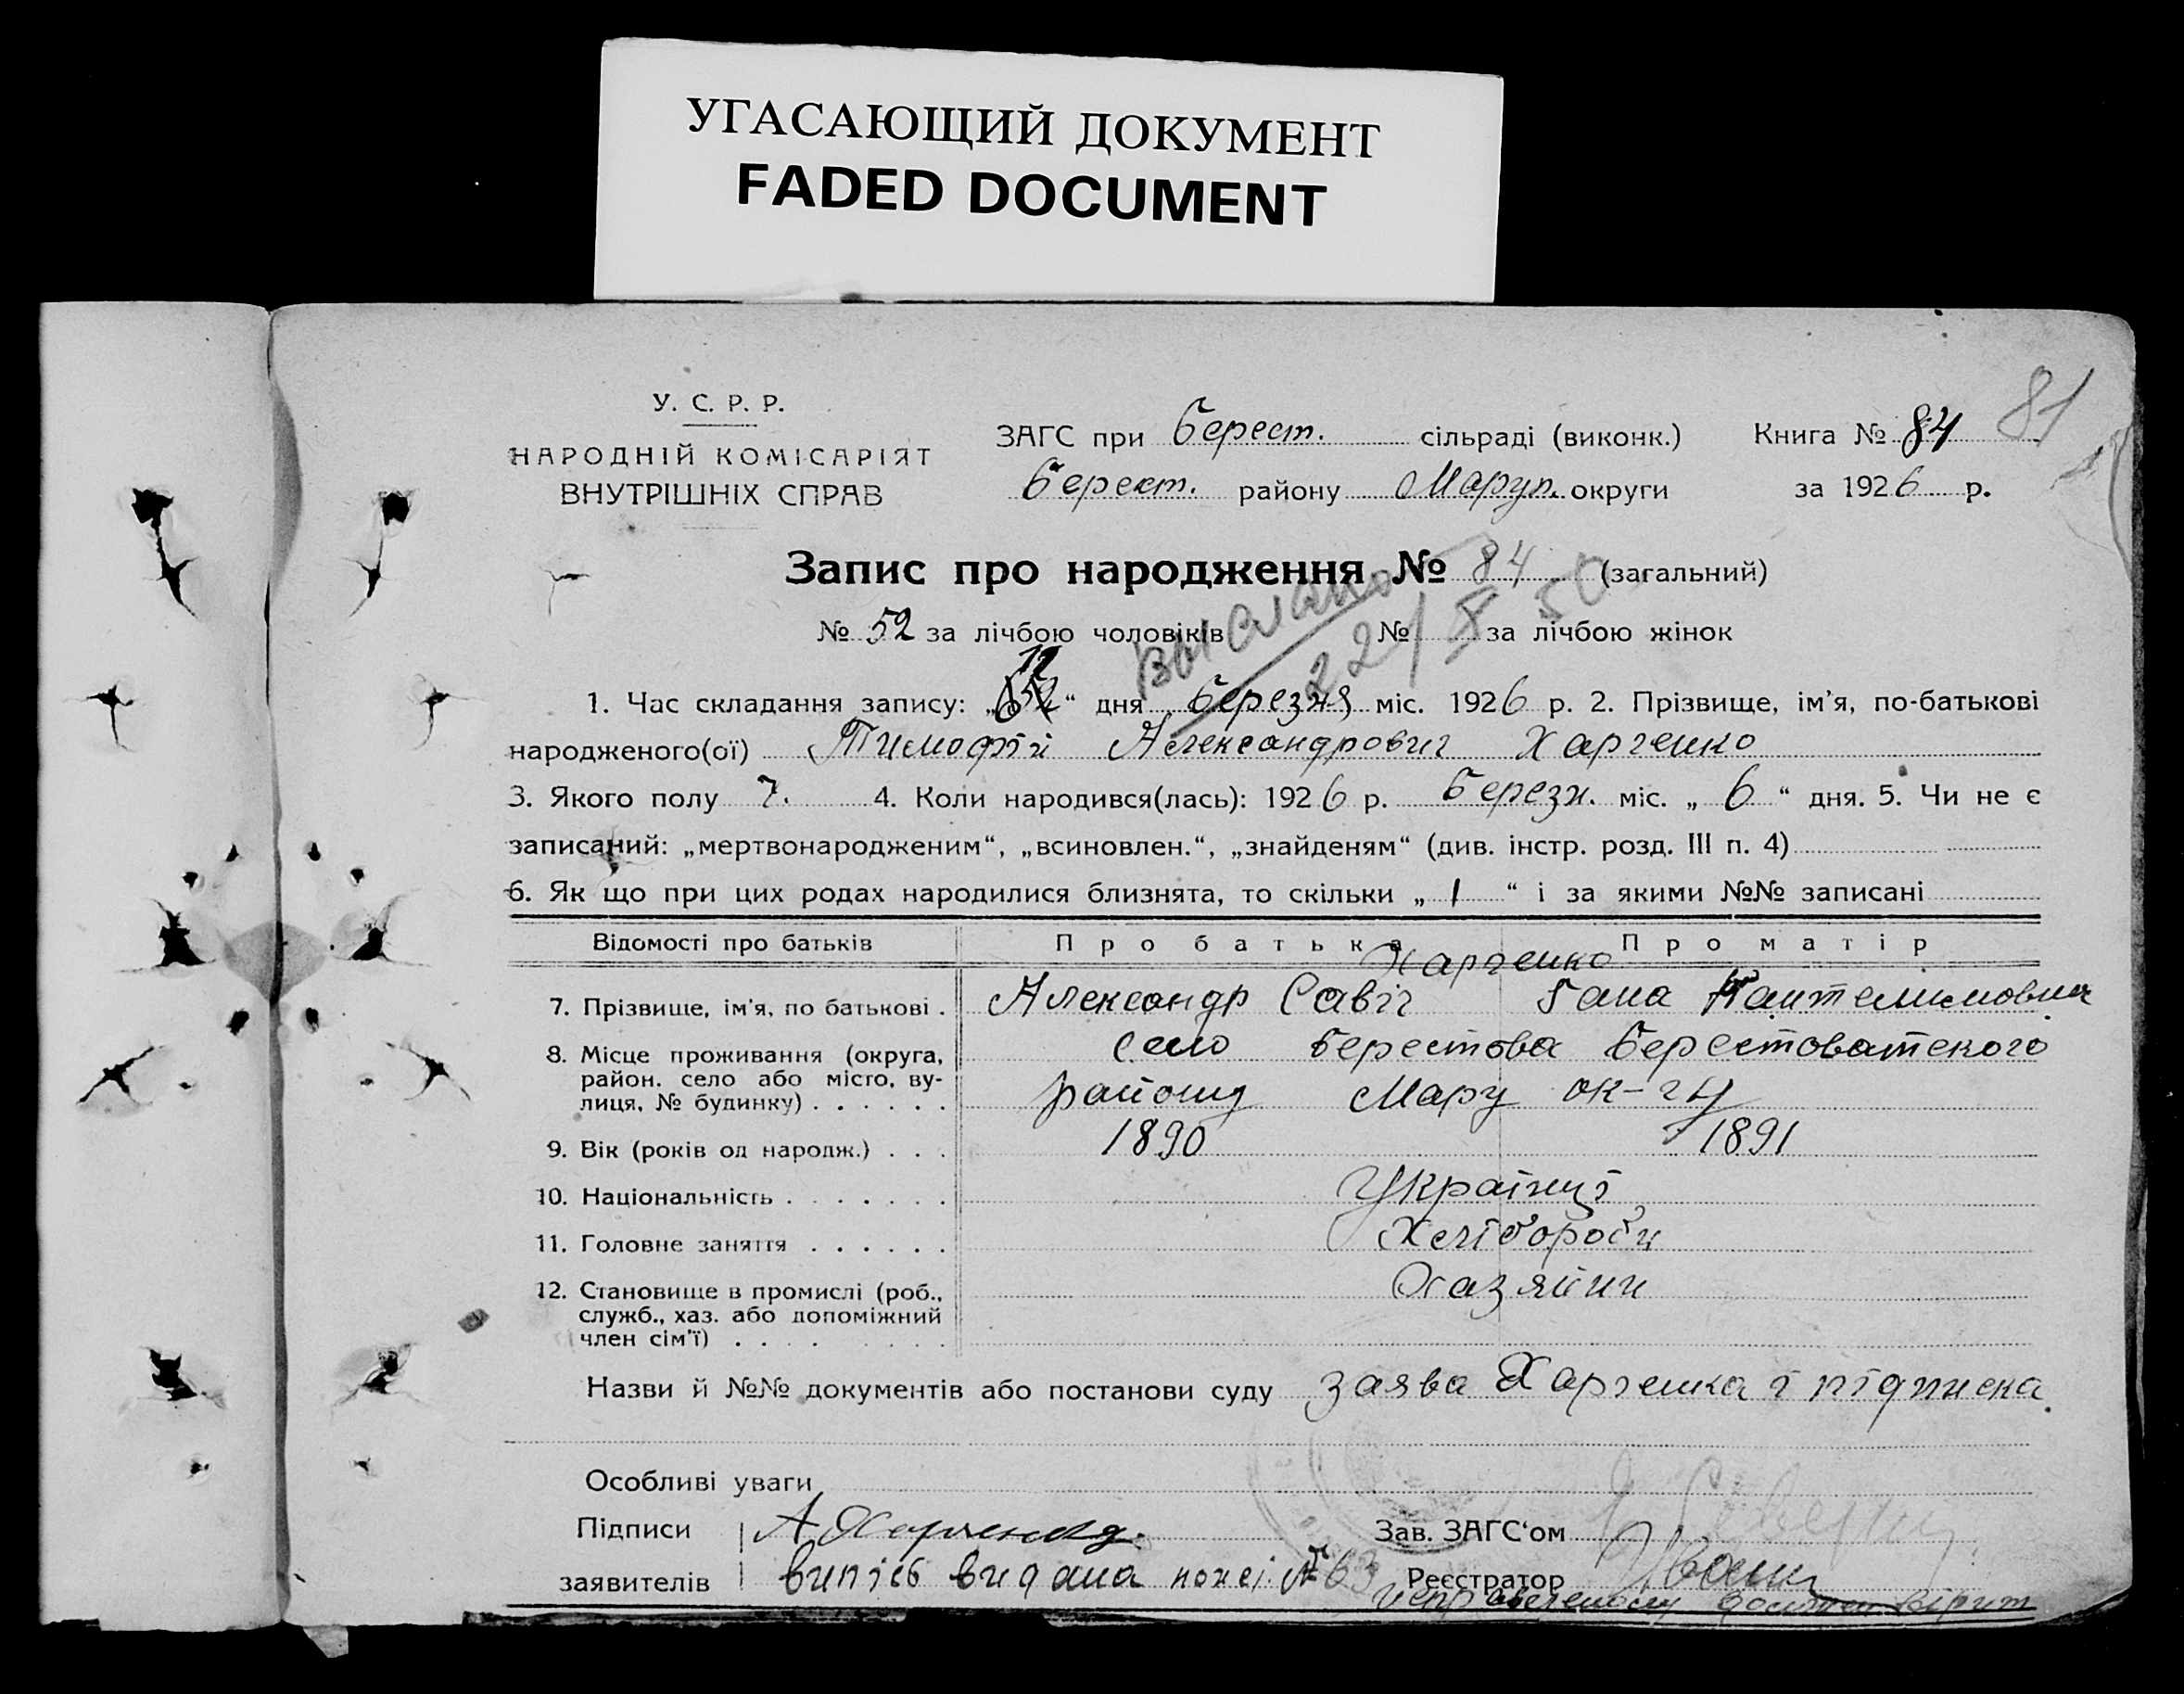 УГАСАЮЩИЙ ДОКУМЕНТ
FADED DOCUMENT
81
У. С. Р. Р.
НАРОДНІЙ КОМІСАРІЯТ
ВНУТРІШНІХ СПРАВ
ЗАГС при Берест. сільраді (виконк.) Книга № 84
Берест. району Маруп. округи за 1926 р.
Запис про народження № 84 (загальний)
№ 52 за лічбою чоловіків № за лічбою жінок
Выслано
22/X 50
12
1. Час складання запису: „ “ дня березня міс. 1926 р. 2. Прізвище, ім'я, по-батькові
народженого(ої) Тимофій Александрович Харченко
3. Якого полу ч. 4. Коли народився(лась): 1926 р. Березн. міс. „ 6 “ дня. 5. Чи не є
записаний: „мертвонародженим“, „всиновлен.“, „знайденям“ (див. інстр. розд. III п. 4)
6. Як що при цих родах народилися близнята, то скільки „ 1 “ і за якими №№ записані
Відомості про батьків Про батька Про матір
Харченко
7. Прізвище, ім'я, по батькові . Александр Савіч Гана Пантелимовна
8. Місце проживання (округа, село Берестова Берестоватского
район. село або місто, ву-
лиця, № будинку) . . . . . . району Мару ок-гы
9. Вік (років од народж.) . . . 1890 1891
10. Національність . . . . . . . Українці
11. Головне заняття . . . . . . Хліборобы
12. Становище в промислі (роб., Хазяйни
служб., хаз. або допоміжний
член сім'ї) . . . .
Назви й №№ документів або постанови суду заява Харченка і підписка.
Особливі уваги
Підписи А Харченко Зав. ЗАГС'ом
заявителів випісь видана № 63 Реєстратор